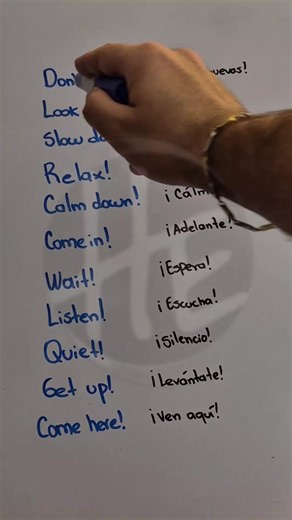 Don't ¡ uevas!
Look
Slow do
Relax!
Calm down! ¡Cálm
Come in! ¡Adelante!
Wait! ¡Espera!
Listen! ¡Escucha!
Quiet! ¡Silencio!
Get up! ¡Levántate!
Come here! ¡Ven aquí!